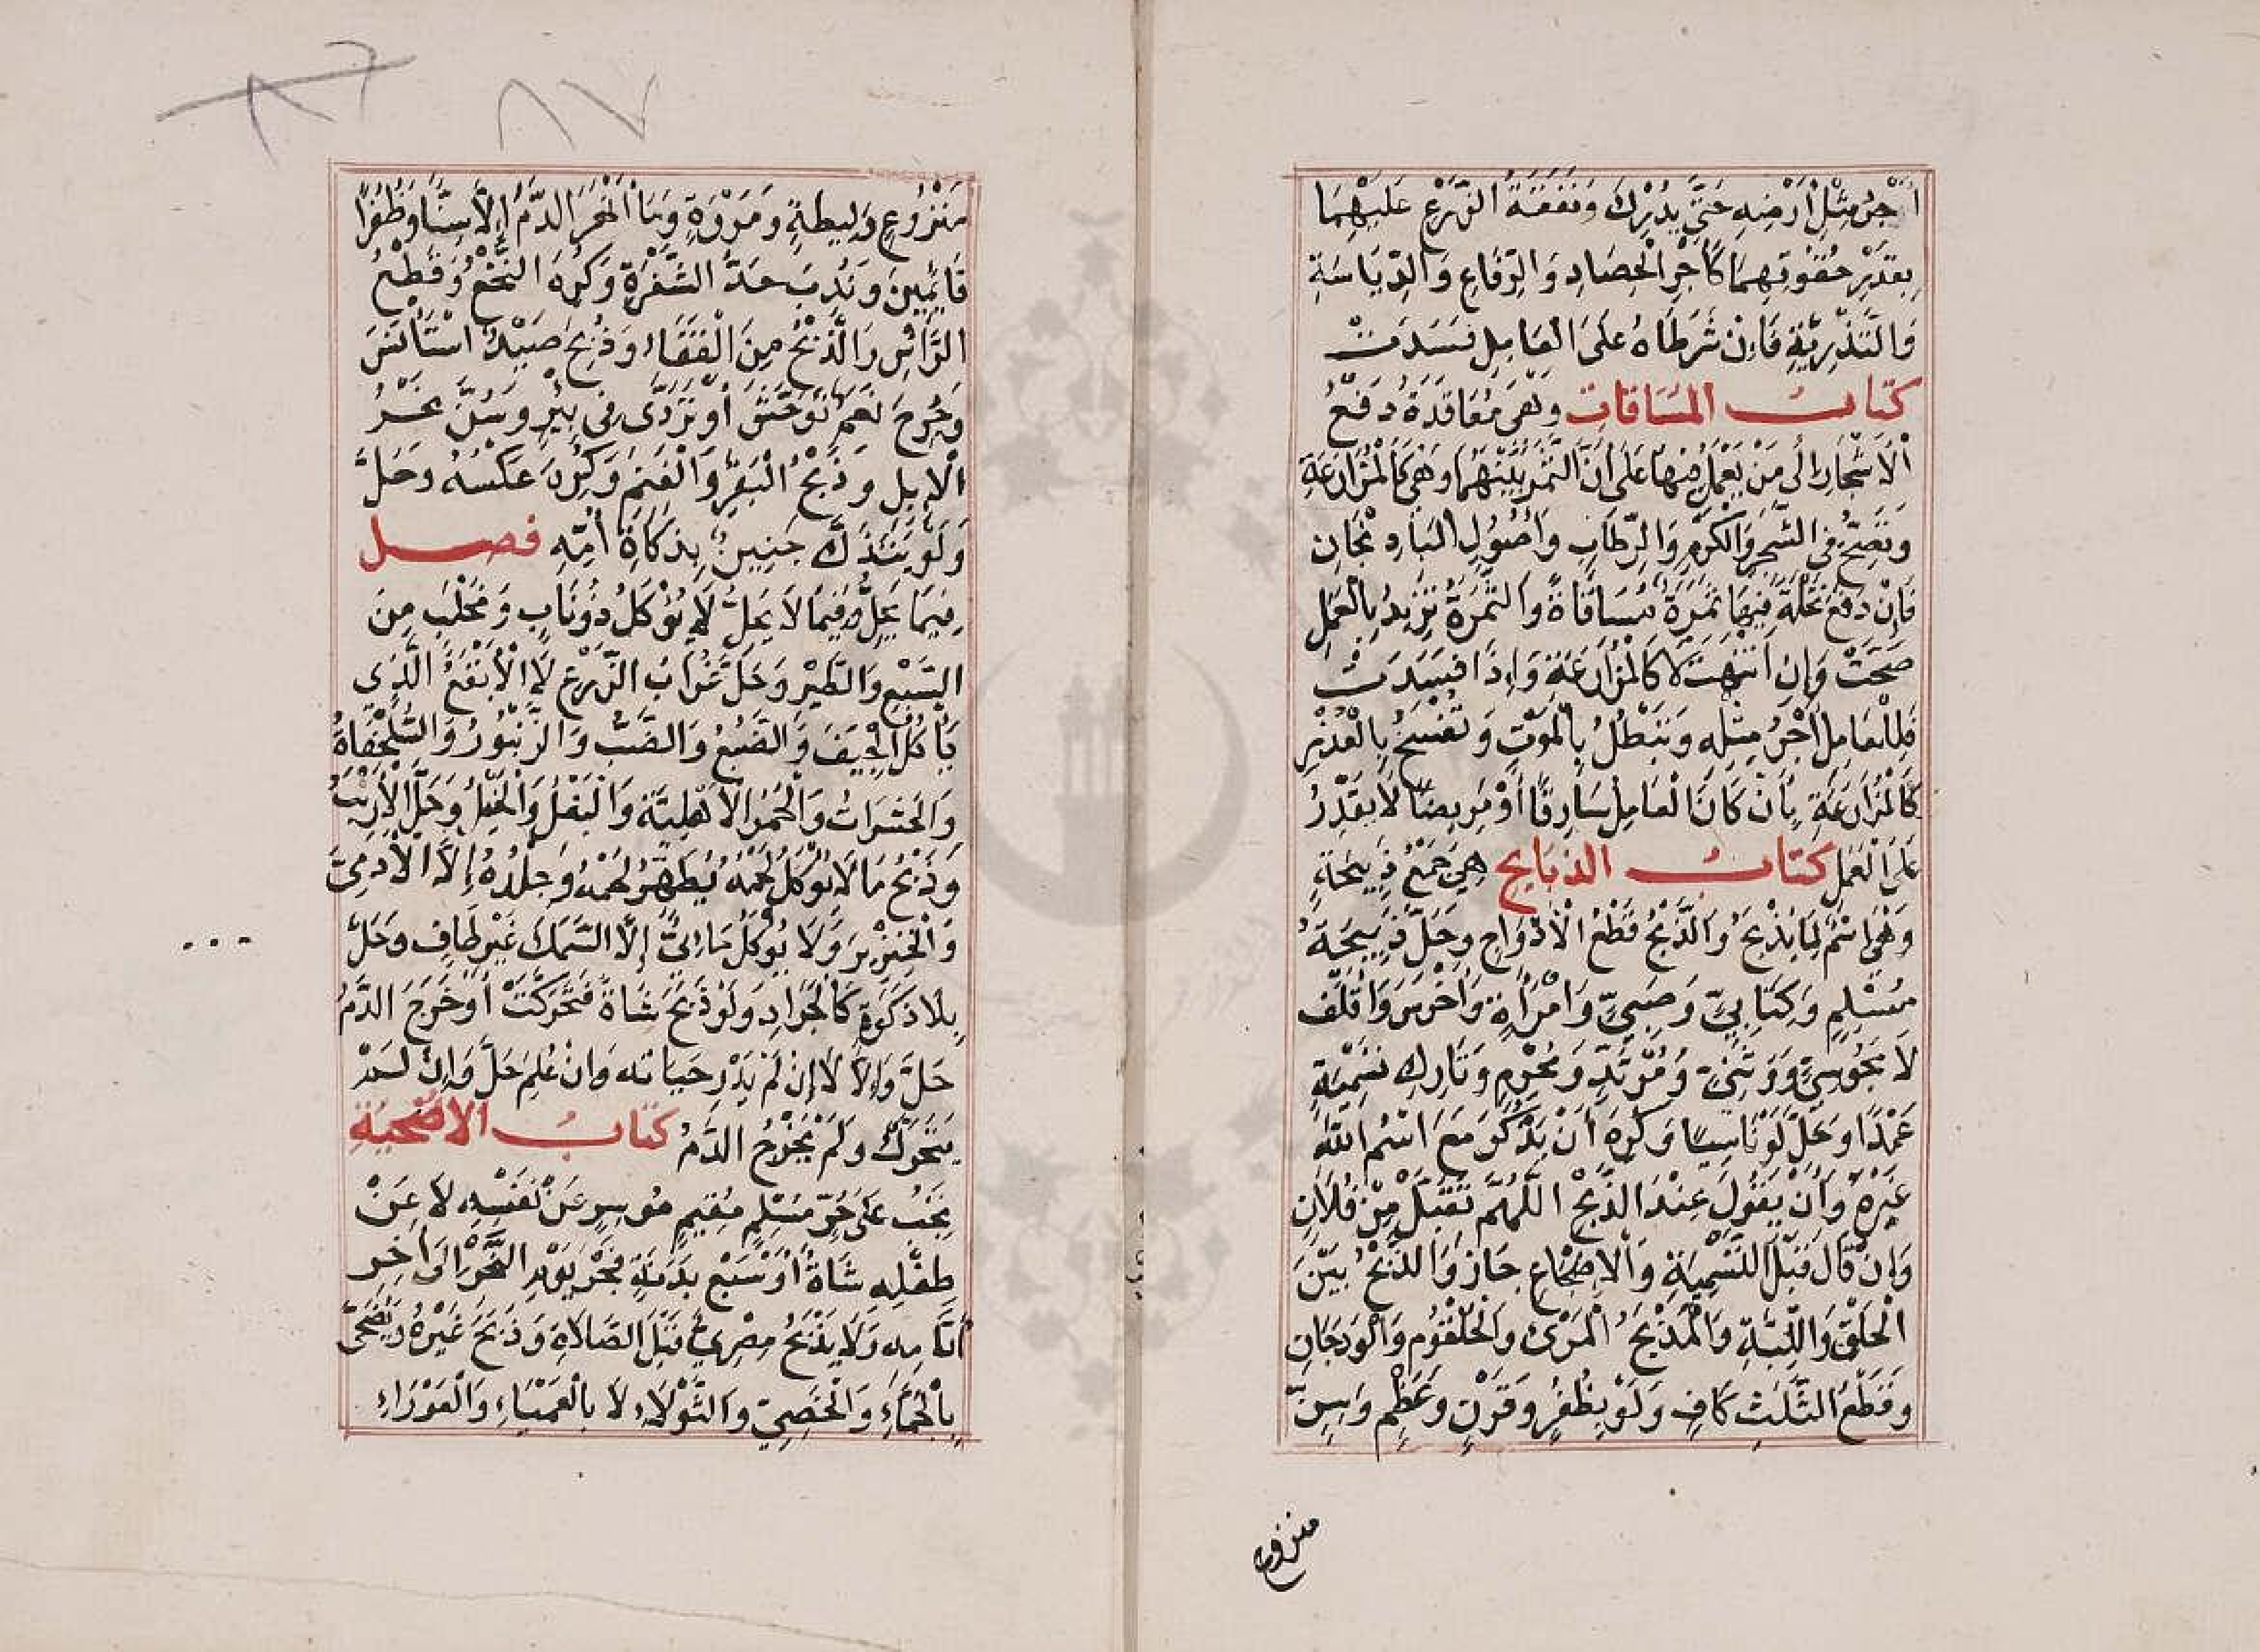 أَجْرُ مِثْلِ أَرْضِهِ حَتَّى يُدْرِكَ وَنَفَقَةُ الزَّرْعِ عَلَيْهِمَا
بِقَدْرِ حُقُوقِهِمَا كَأَجْرِ الْحِصَادِ وَالرِّفَاعِ وَالدِّيَاسَةِ
وَالتَّذْرِيَةِ فَاِنْ شَرَطَاهُ عَلَى الْعَامِلِ فَسَدَتْ
كتاب المسَاقات وَهِىَ مُعَاقَدَةُ دَفْعُ
الْأَشْجَارِ اِلَى مَنْ يَعْمَلُ فِيْهَا عَلَى أَنَّ الثَّمَرَ بَيْنَهُمَا وَهِىَ كَالْمُزَارَعَةِ
وَتَصِحُّ فِى الشَّجَرِ وَالْكَرْمِ وَالرِّطَابِ وَاُصُوْلِ الْبَاذِنْجَانِ
فَاِنْ دَفَعَ نَخْلَةً فِيْهَا ثَمَرَةٌ مُسَاقَاةً وَالثَّمَرَةُ تَزِيْدُ بِالْعَمَلِ
صَحَّتْ وَاِنِ انْتَهَتْ لَا كَالْمُزَارَعَةِ وَاِذَا فَسَدَتْ
فَلِلْعَامِلِ أَجْرُ مِثْلِهِ وَتَبْطُلُ بِالْمَوْتِ وَتُفْسَخُ بِالْعُذْرِ
كَالْمُزَارَعَةِ بِأَنْ كَانَ الْعَامِلُ سَارِقًا أَوْ مَرِيضًا لَا يَقْدِرُ
عَلَى الْعَمَلِ كتاب الذبايح هِىَ جَمْعُ ذَبِيْحَةٍ
وَهْىَ اسْمٌ لِمَا يُذْبَحُ وَالذَّبْحُ قَطْعُ الْأَوْدَاجِ وَحَلَّ ذَبِيْحَةُ
مُسْلِمٍ وَكِتَابِيٍّ وَصَبِيٍّ وَامْرَأَةٍ وَأَخْرَسَ وَأَقْلَفَ
لَا مَجُوسِيٍّ وَوَثَنِيٍّ وَمُرْتَدٍّ وَمُحْرِمٍ وَتَارِكِ تَسْمِيَةٍ
عَمْدًا وَحَلَّ لَوْ نَاسِيًا وَكُرِهَ أَنْ يَذْكُرَ مَعَ اسْمِ اللّٰهِ
غَيْرَهُ وَأَنْ يَقُولَ عِنْدَ الذَّبْحِ اللّٰهُمَّ تَقَبَّلْ مِنْ فُلَانٍ
وَاِنْ قَالَ قَبْلَ التَّسْمِيَةِ وَالْاِضْجَاعِ جَازَ وَالذَّبْحُ بَيْنَ
الْحَلْقِ وَاللَّبَّةِ وَالْمَذْبَحُ الْمَرِئُ وَالْحُلْقُوْمُ وَالْوَدَجَانِ
وَقَطْعُ الثَّلَثِ كَافٍ وَلَوْ بِظُفْرٍ وَقَرْنٍ وَعَظْمٍ وَسِنٍّ
منزوع
٨٧
مَنْزُوعٍ وَلِيطَةٍ وَمَرْوَةٍ وَمَا أَنْهَرَ الدَّمَ إِلَّا سِنًّا وَظُفْرًا
قَائِمَيْنِ وَنُدِبَ حَدُّ الشَّفْرَةِ وَكُرِهَ النَّخْعُ وَقَطْعُ
الرَّأْسِ وَالذَّبْحُ مِنَ الْقَفَاءِ وَذُبِحَ صَيْدٌ اسْتَأْنَسَ
وَجُرِحَ نَعَمٌ تَوَحَّشَ أَوْ تَرَدَّى فِى بِئْرٍ وَسُنَّ نَحْرُ
الْاِبِلِ وَذَبْحُ الْبَقَرِ وَالْغَنَمِ وَكُرِهَ عَكْسُهُ وَحَلَّ
وَلَوْ يَتَذَكَّ جَنِيْنٌ بِذَكَاةِ أُمِّهِ فصل
فِيْمَا يَحِلُّ وَفِيْمَا لَا يَحِلُّ لَا يُؤْكَلُ ذُوْنَابٍ وَمَخْلَبٍ مِنَ
السَّبْعِ وَالطَّيْرِ وَحَلَّ غُرَابُ الزَّرْعِ لَا الْأَبْقَعُ الَّذِي
يَأْكُلُ الْجِيَفَ وَالضَّبُعُ وَالضَّبُّ وَالزُّنْبُوْرُ وَالسُّلَحْفَاةُ
وَالْحَشَرَاتُ وَالْحُمُرُ الْأَهْلِيَّةُ وَالْبَغْلُ وَالْخَيْلُ وَحَلَّ الْأَرْنَبُ
وَذَبْحُ مَا لَا يُؤْكَلُ لَحْمُهُ يُطَهِّرُ لَحْمَهُ وَجِلْدَهُ إِلَّا الْآدَمِىَّ
وَالْخِنْزِيْرَ وَلَا يُؤْكَلُ مَائِيٌّ إِلَّا السَّمَكَ غَيْرَ طَافٍ وَحَلَّ
بِلَا ذَكَوةٍ كَالْجَرَادِ وَلَوْ ذَبَحَ شَاةً فَتَحَرَّكَتْ أَوْ خَرَجَ الدَّمُ
حَلَّ وَاِلَّا لَا إِنْ لَمْ يَدْرِ حَيَاتَهُ وَاِنْ عُلِمَ حَلَّ وَاِنْ لَمْ
يَتَحَرَّكْ وَلَمْ يَخْرُجِ الدَّمُ كتابُ الاضحيَةِ
يَجِبُ عَلَى حُرٍّ مُسْلِمٍ مُقِيْمٍ مُوسِرٍ عَنْ نَفْسِهِ لَا عَنْ
طِفْلِهِ شَاةٌ أَوْ سَبْعُ بَدَنَةٍ فَجْرَ يَوْمِ النَّحْرِ اِلَى آخِرِ
أَيَّامِهِ وَلَا يَذْبَحُ مِصْرِيٌّ قَبْلَ الصَّلَاةِ وَذَبَحَ غَيْرُهُ وَيُضَحَّى
بِالْجَمَّاءِ وَالْخَصِيِّ وَالثَّوْلَاءِ لَا بِالْعَمْيَاءِ وَالْعَوْرَاءِ